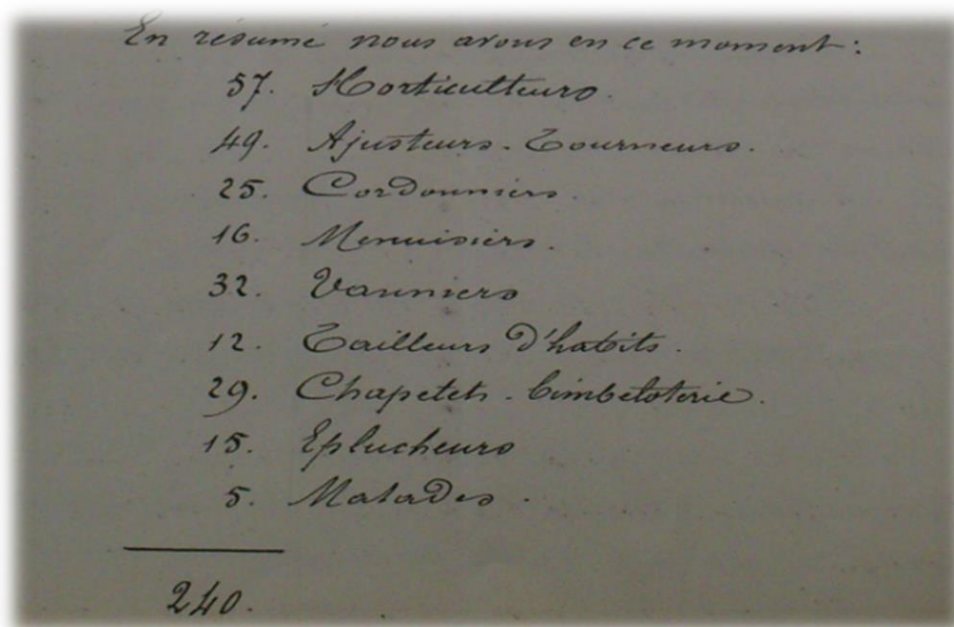 En résumé nous avons en ce moment:
57. Horticulteurs.
49. Ajusteurs. Tourneurs.
25. Cordonniers.
16. Menuisiers.
32. Vanniers
12. Tailleurs d'habits.
29. Chapelets. bimbeloterie.
15. Eplucheurs
5. Malades.
240.